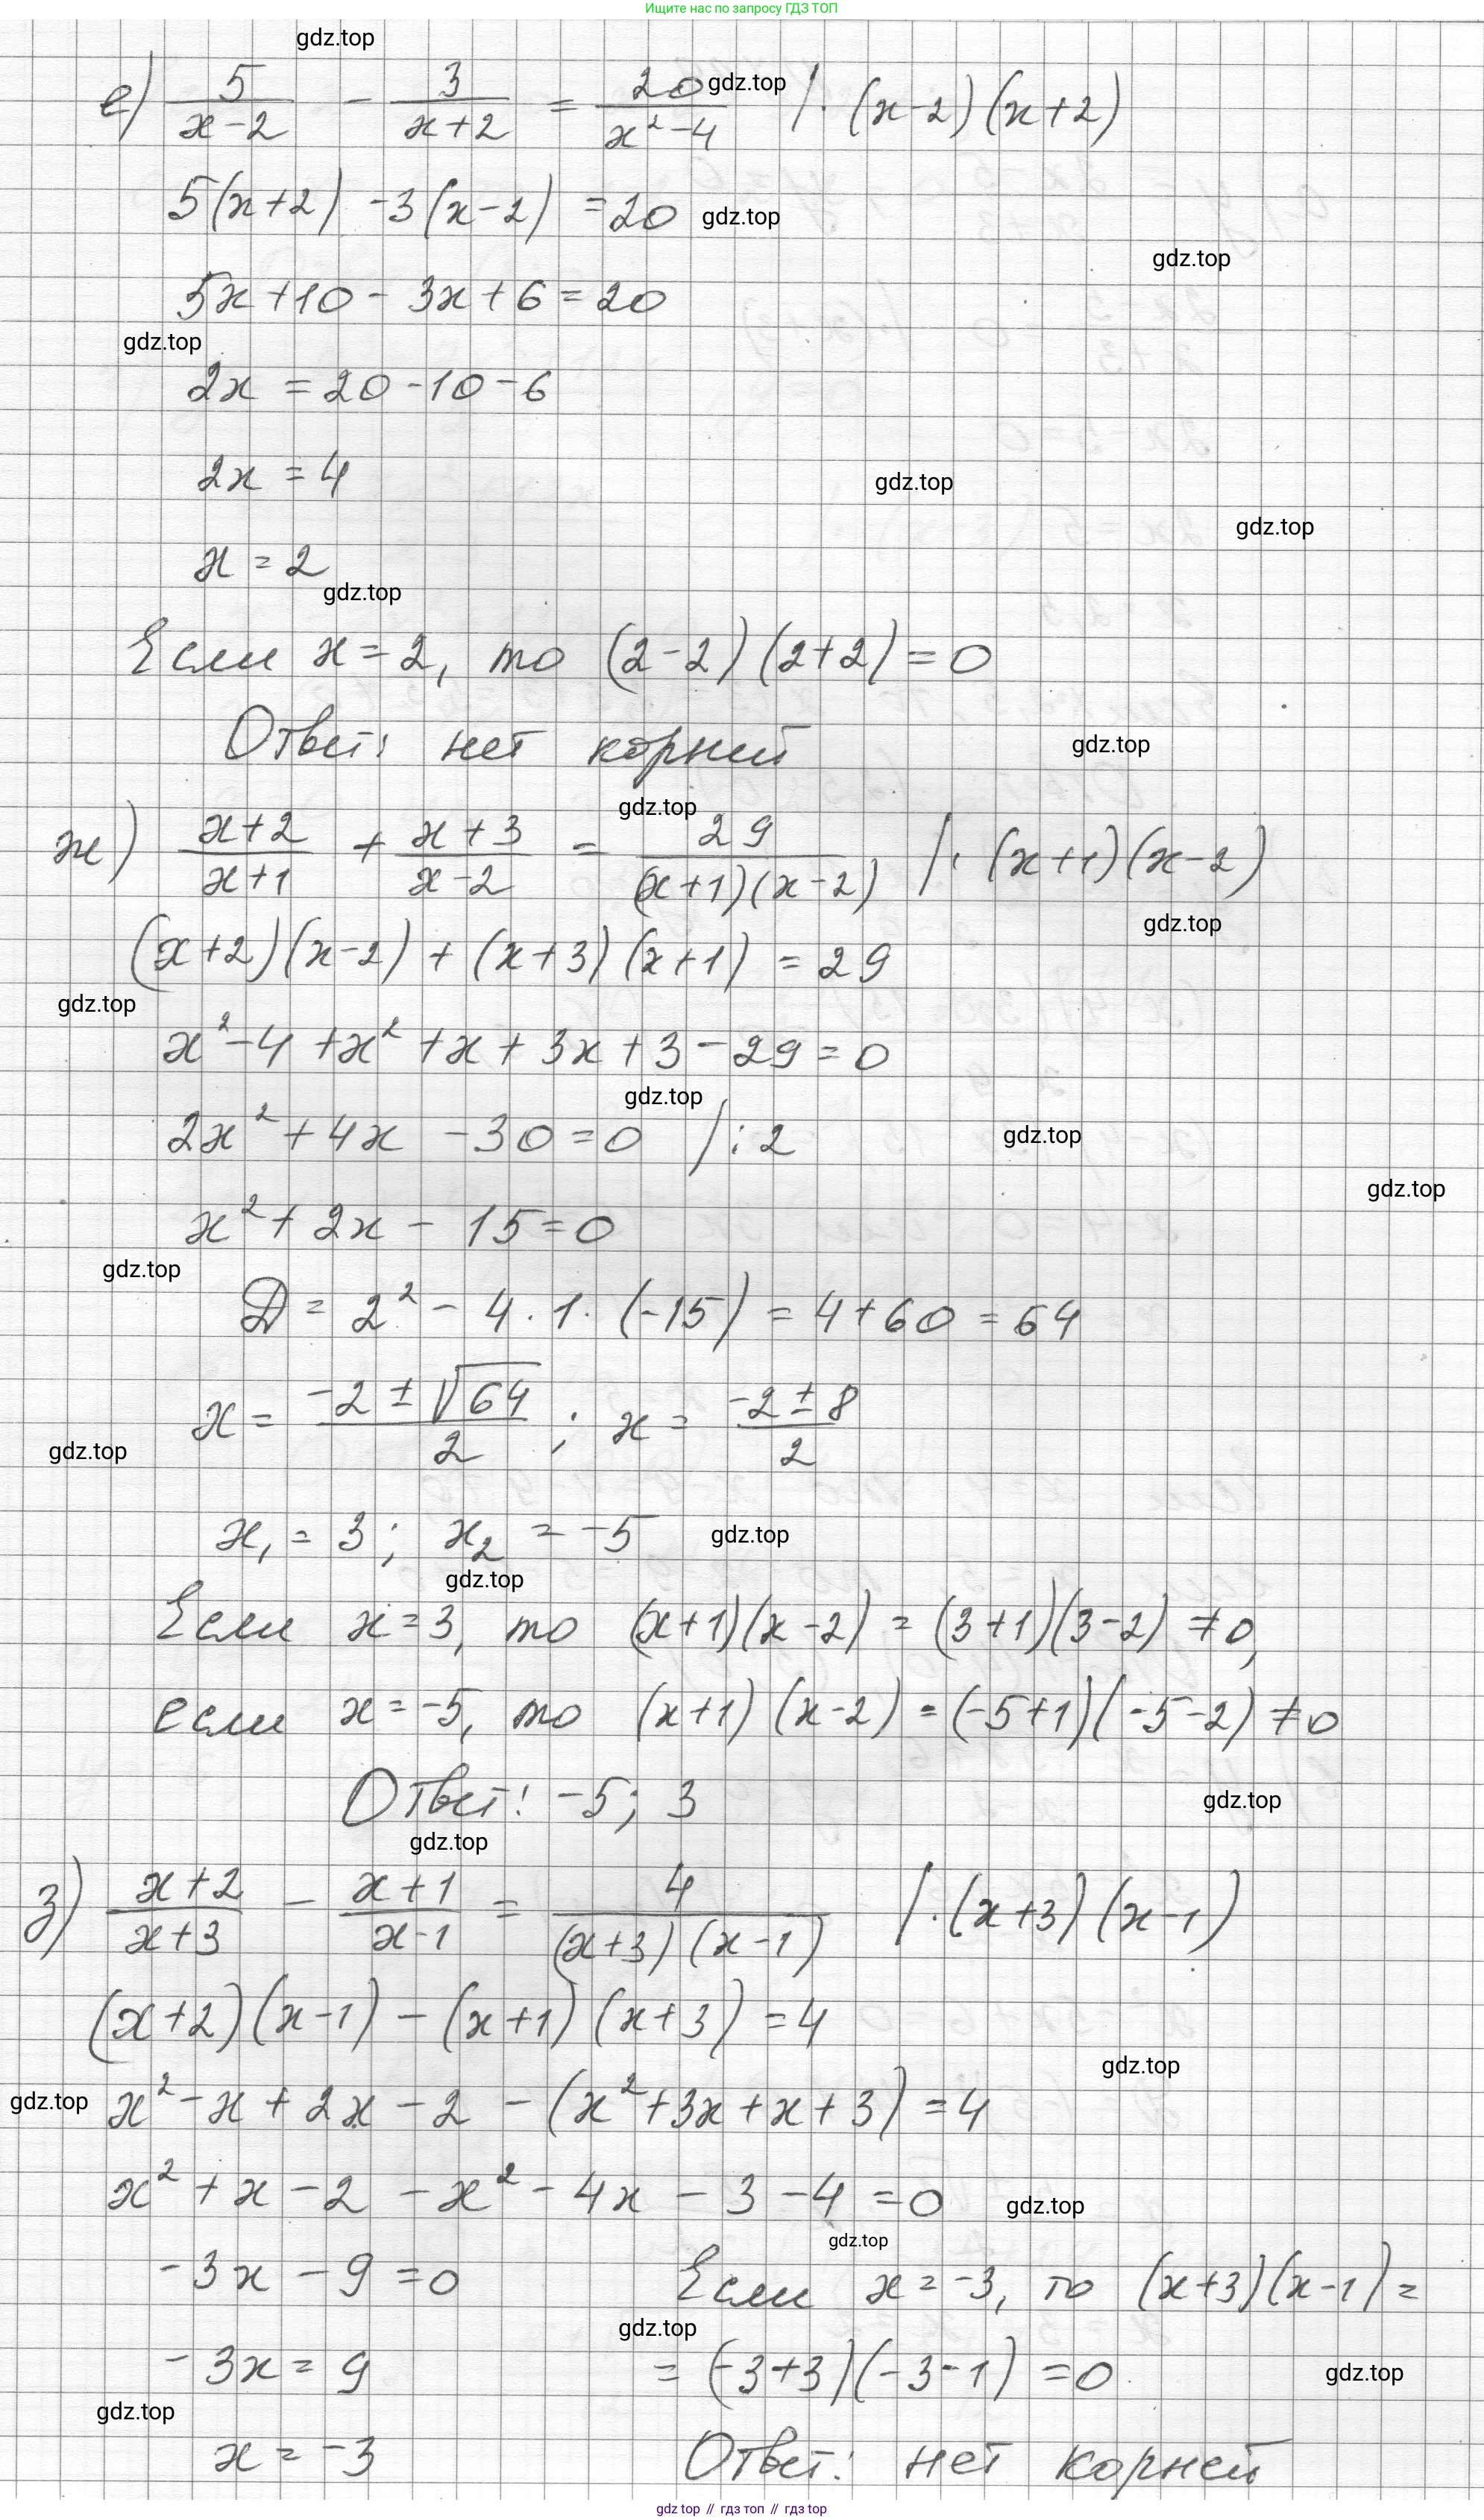 Ищите нас по запросу ГДЗ ТОП
gdz.top
е) 5/(x-2) - 3/(x+2) = 20/(x²-4) gdz.top /· (x-2)(x+2)
5(x+2) -3(x-2) =20 gdz.top
gdz.top
5x+10- 3x+6=20
gdz.top
2x =20-10-6
2x =4
gdz.top
gdz.top
x=2
gdz.top
Если x=2, то (2-2)(2+2)=0
Ответ: нет корней
gdz.top
gdz.top
ж) (x+2)/(x+1) + (x+3)/(x-2) = 29/((x+1)(x-2)) /· (x+1)(x-2)
gdz.top
(x+2)(x-2) + (x+3)(x+1) =29
gdz.top
x²-4+x²+x+3x+3-29=0
gdz.top
2x²+4x -30=0 /:2
gdz.top
gdz.top
x²+2x- 15=0
gdz.top
D= 2²- 4·1·(-15) =4+60=64
x= (-2±√64)/2 ; x= (-2±8)/2
gdz.top
x₁=3; x₂=-5 gdz.top
gdz.top
Если x=3, то (x+1)(x-2) =(3+1)(3-2) ≠0,
если x=-5, то (x+1)(x-2) =(-5+1)(-5-2)≠0
Ответ: -5; 3
gdz.top
gdz.top
з) (x+2)/(x+3) - (x+1)/(x-1) = 4/((x+3)(x-1)) /·(x+3)(x-1)
(x+2)(x-1)-(x+1)(x+3)=4
gdz.top
gdz.top x²-x+2x-2-(x²+3x+x+3)=4
x²+x-2-x²-4x-3-4=0 gdz.top
gdz.top
-3x-9=0 Если x=-3, то (x+3)(x-1)=
gdz.top
-3x=9 = (-3+3)(-3-1)=0 gdz.top
gdz.top
x=-3 Ответ: нет корней
gdz top // гдз топ // gdz top